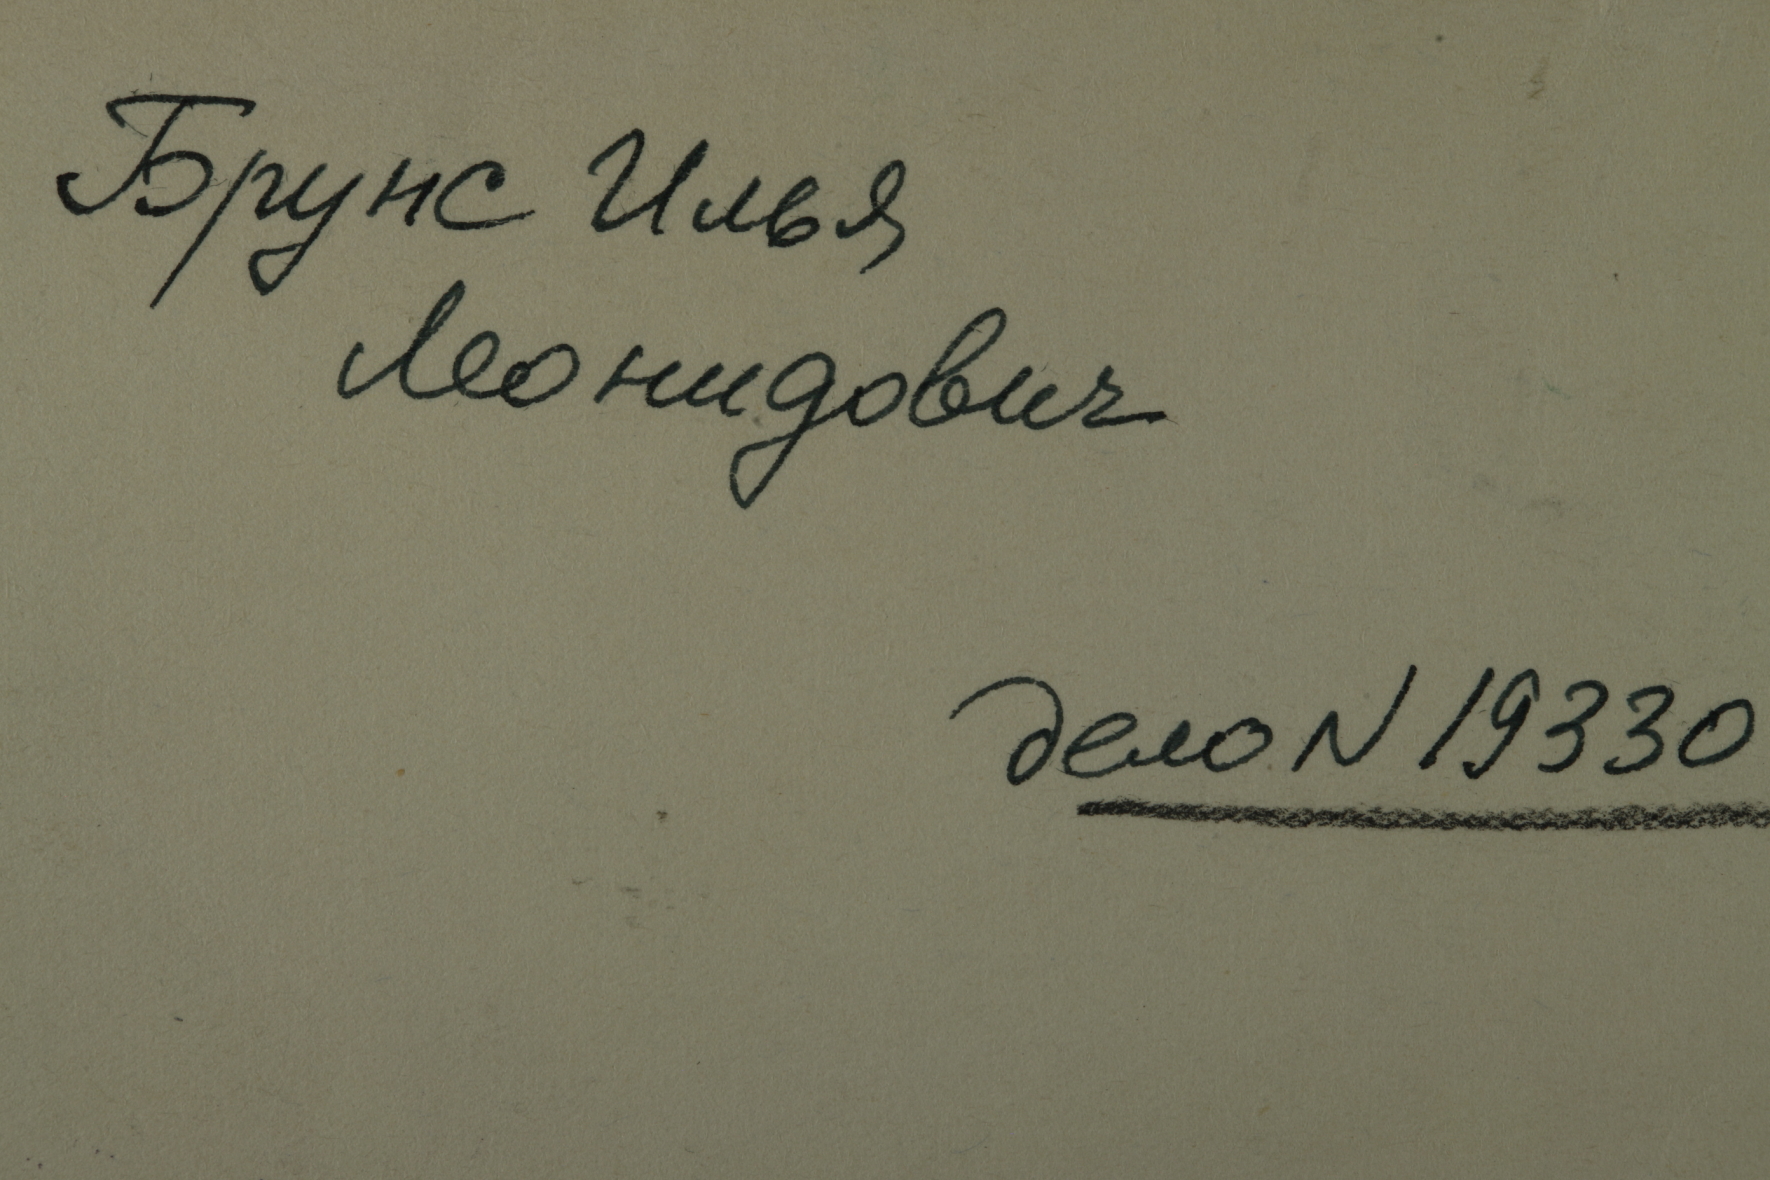 Брунс Илья
Леонидович
дело N 19330